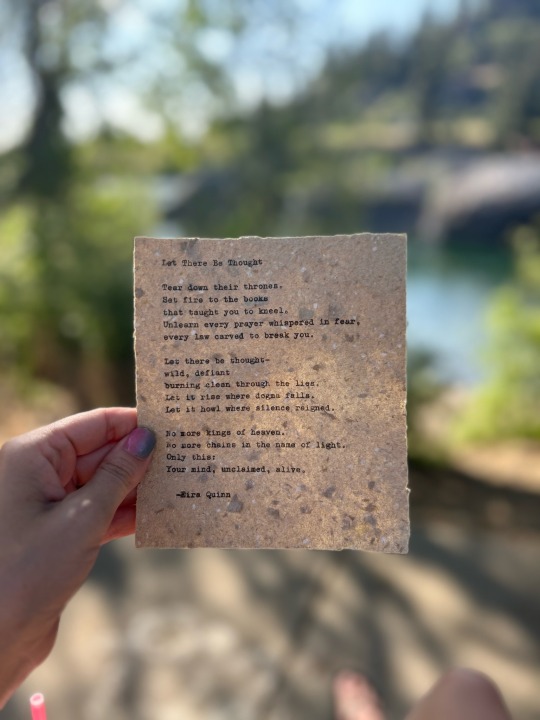 Let There Be Thought
Tear down their thrones.
Set fire to the books
that taught you to kneel.
Unlearn every prayer whispered in fear,
every law carved to break you.
Let there be thought-
wild, defiant
burning clean through the lies.
Let it rise where dogma falls.
Let it howl where silence reigned.
No more kings of heaven.
No more chains in the name of light.
Only this:
Your mind, unclaimed, alive.
-Eira Quinn